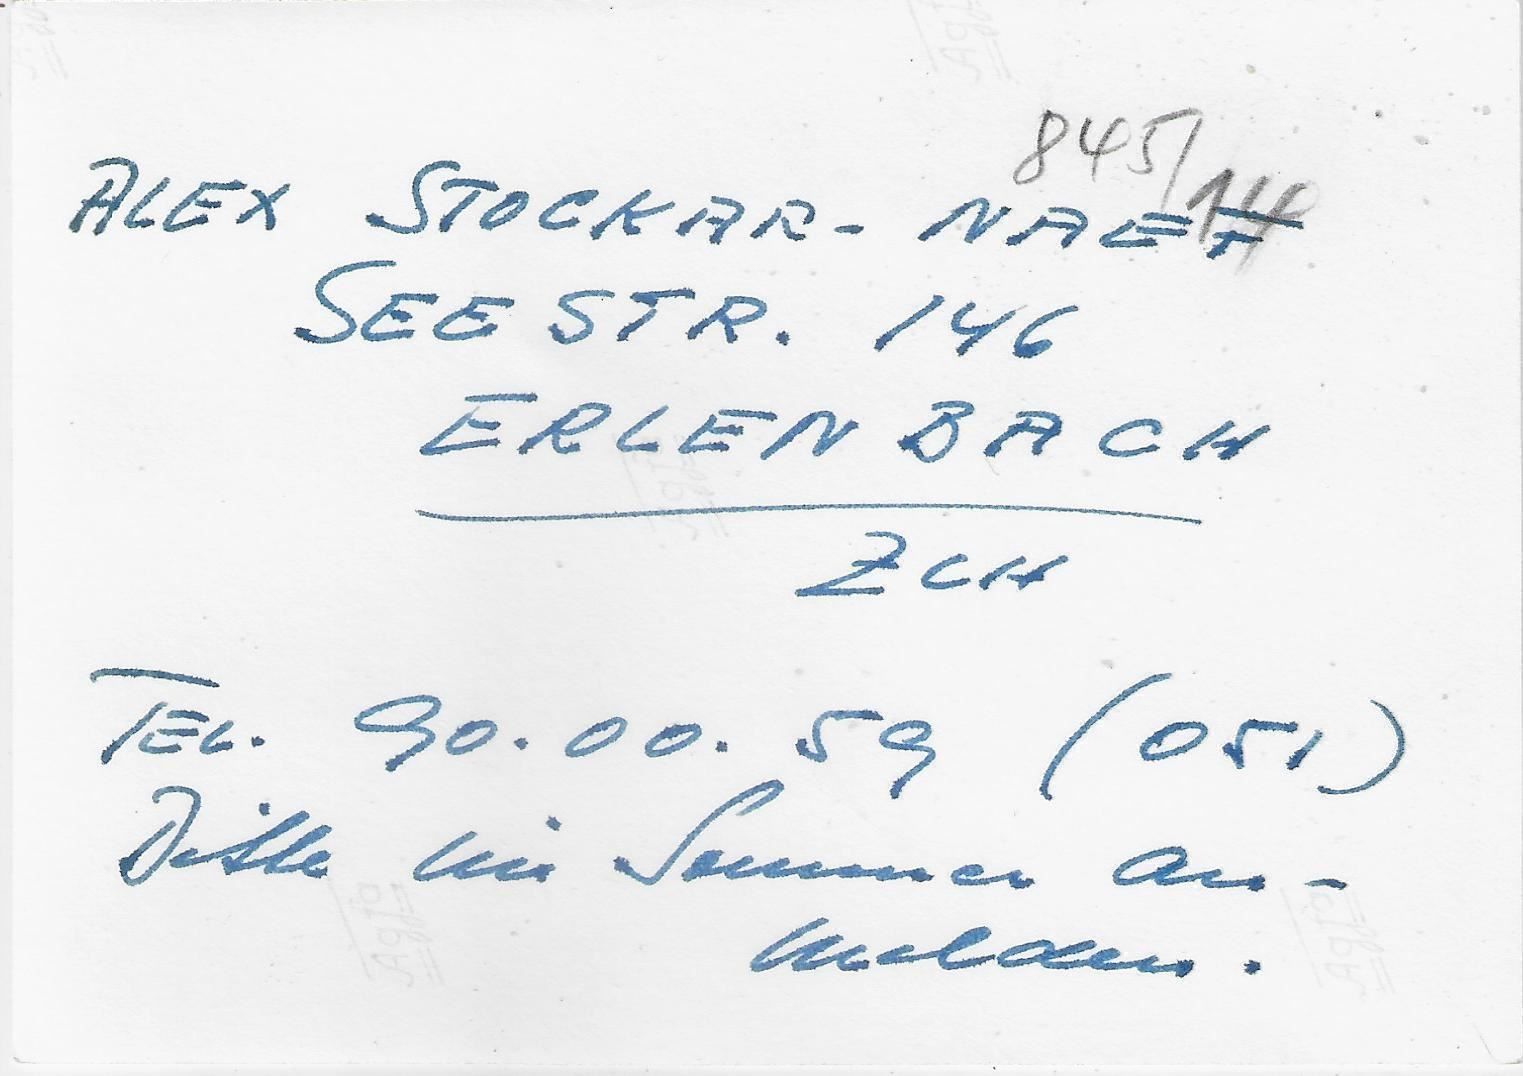 845/14
ALEX STOCKAR-NAEF
SEESTR. 146
ERLENBACH
ZCH
TEL. 90.00.59 (051)
Bitte im Sommer an-
melden.
Agfa
Agfa
Agfa
Agfa